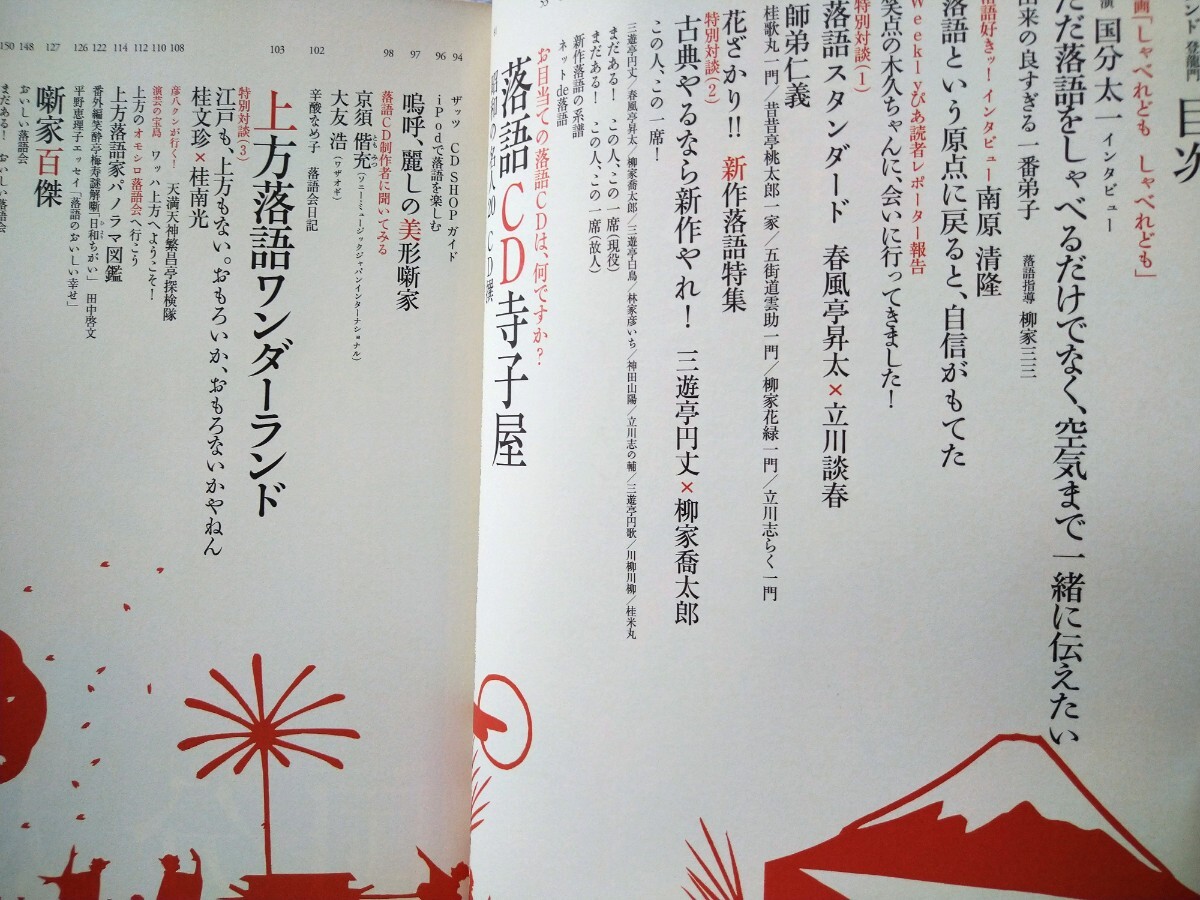 目次
画「しゃべれども しゃべれども」
演 国分太一 インタビュー
ただ落語をしゃべるだけでなく、空気まで一緒に伝えたい
出来の良すぎる 一番弟子 落語指導 柳家三三
落語好きッ！インタビュー 南原 清隆
落語という原点に戻ると、自信がもてた
Weeklyぴあ読者レポーター報告
笑点の木久ちゃんに、会いに行ってきました！
特別対談(1)
落語スタンダード 春風亭昇太×立川談春
師弟仁義
桂歌丸一門／昔昔亭桃太郎一家／五街道雲助一門／柳家花緑一門／立川志らく一門
花ざかり!! 新作落語特集
特別対談(2)
古典やるなら新作やれ！ 三遊亭円丈×柳家喬太郎
この人、この一席！
三遊亭円丈／春風亭昇太／柳家喬太郎／三遊亭白鳥／林家彦いち／神田山陽／立川志の輔／三遊亭円歌／川柳川柳／桂米丸
まだある！ この人、この一席（現役）
まだある！ この人、この一席（故人）
新作落語の系譜
ネットde落語
53
お目当ての落語CDは、何ですか？
落語CD寺子屋
昭和の名人20 CD選
94 ザッツ CD SHOPガイド
96 iPodで落語を楽しむ
97 嗚呼、麗しの美形噺家
98 落語CD制作者に聞いてみる
京須 偕充（ソニーミュージックジャパンインターナショナル）
ともみつ
大友 浩（ワザオギ）
102 辛酸なめ子 落語会日記
103 上方落語ワンダーランド
特別対談(3)
江戸も、上方もない。おもろいか、おもろないかやねん
108 桂文珍×桂南光
彦八クンが行く！ 天満天神繁昌亭探検隊
110 演芸の宝島 ワッハ上方へようこそ！
112 上方のオモシロ落語会へ行こう
114 上方落語家パノラマ図鑑
122 番外編笑酔亭梅寿謎解噺「日和ちがい」 田中啓文
ひより
126 平野恵理子エッセイ「落語のおいしい幸せ」
127 噺家百傑
148 おいしい落語会
150 まだある！ おいしい落語会